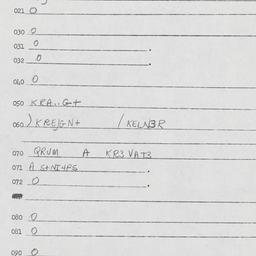 021 0
030 0
031 0 .
032 0 .
040 0
050 KRA..G+
060 ) KREJGN+ / KELN3R
070 QRUM A KR3VAT3
071 A S+NI4PS .
072 0 .
080 0
081 0
090 0